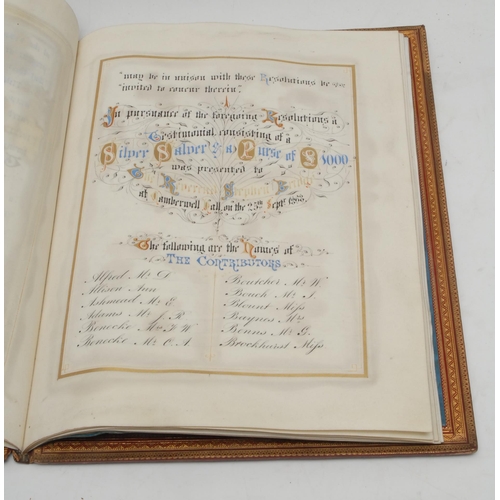 "may be in unison with these Resolutions be
"invited to concur therein"
In pursuance of the foregoing Resolutions a
Testimonial consisting of a
Silver Salver & a Purse of £
was presented to
The Reverend
at Camberwell Hall, on the 25th Septr
The following are the Names of
THE CONTRIBUTORS.
Alfred Mr D.
Allison Ann
Ashmead Mr E.
Adams Mr J. R.
Benecke W.
Benecke Mr O. A.
Boutcher Mr W.
Beach Mr J.
Blount Miss
Baynes Mr
Benns Mr G.
Brockhurst Miss